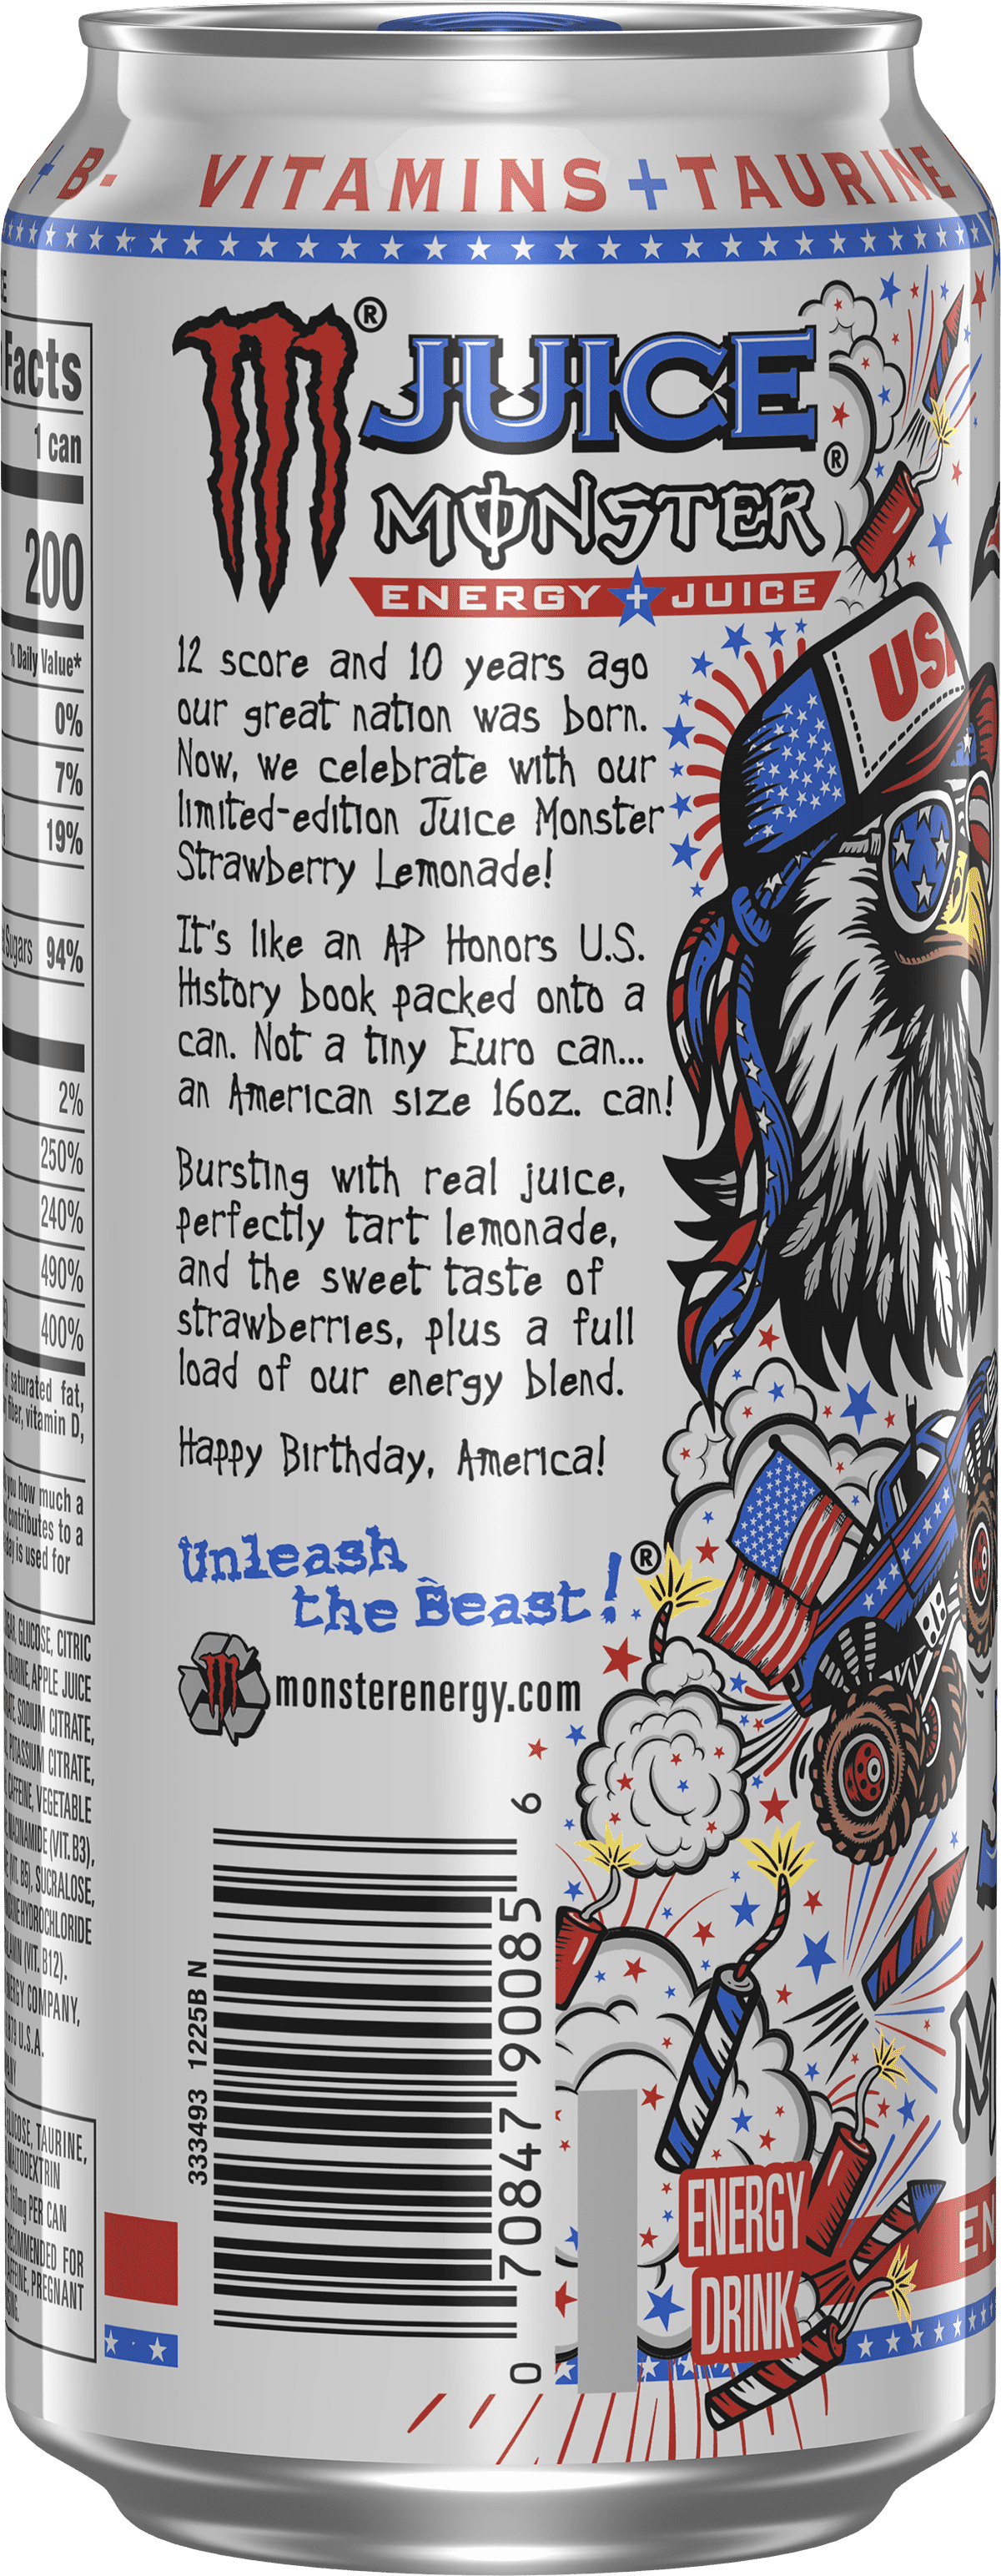 + B- VITAMINS + TAURINE
Facts
1 can
200
% Daily Value*
0%
7%
19%
Sugars 94%
2%
250%
240%
490%
400%
saturated fat,
fiber, vitamin D,
you how much a
contributes to a
day is used for
GLUCOSE, CITRIC
TAURINE, APPLE JUICE
SODIUM CITRATE,
POTASSIUM CITRATE,
CAFFEINE, VEGETABLE
NIACINAMIDE (VIT. B3),
(VIT. B6), SUCRALOSE,
HYDROCHLORIDE
(VIT. B12).
COMPANY,
U.S.A.
GLUCOSE, TAURINE,
MALTODEXTRIN
160mg PER CAN
RECOMMENDED FOR
CAFFEINE, PREGNANT
®
JUICE
MONSTER®
ENERGY + JUICE
12 score and 10 years ago
our great nation was born.
Now, we celebrate with our
limited-edition Juice Monster
Strawberry Lemonade!
It's like an AP Honors U.S.
History book packed onto a
can. Not a tiny Euro can...
an American size 16oz. can!
Bursting with real juice,
perfectly tart lemonade,
and the sweet taste of
strawberries, plus a full
load of our energy blend.
Happy Birthday, America!
Unleash
the Beast!®
monsterenergy.com
333493 1225B N
0 70847 90085 6
USA
ENERGY
DRINK
M
EN